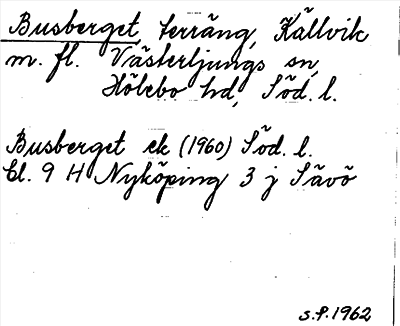 Busberget, terräng, Källvik
m. fl. Västerljungs sn,
Hölebo hd, Söd. l.
Busberget ek (1960) Söd. l.
Bl. 9 H Nyköping 3 j Sävö
S.P. 1962